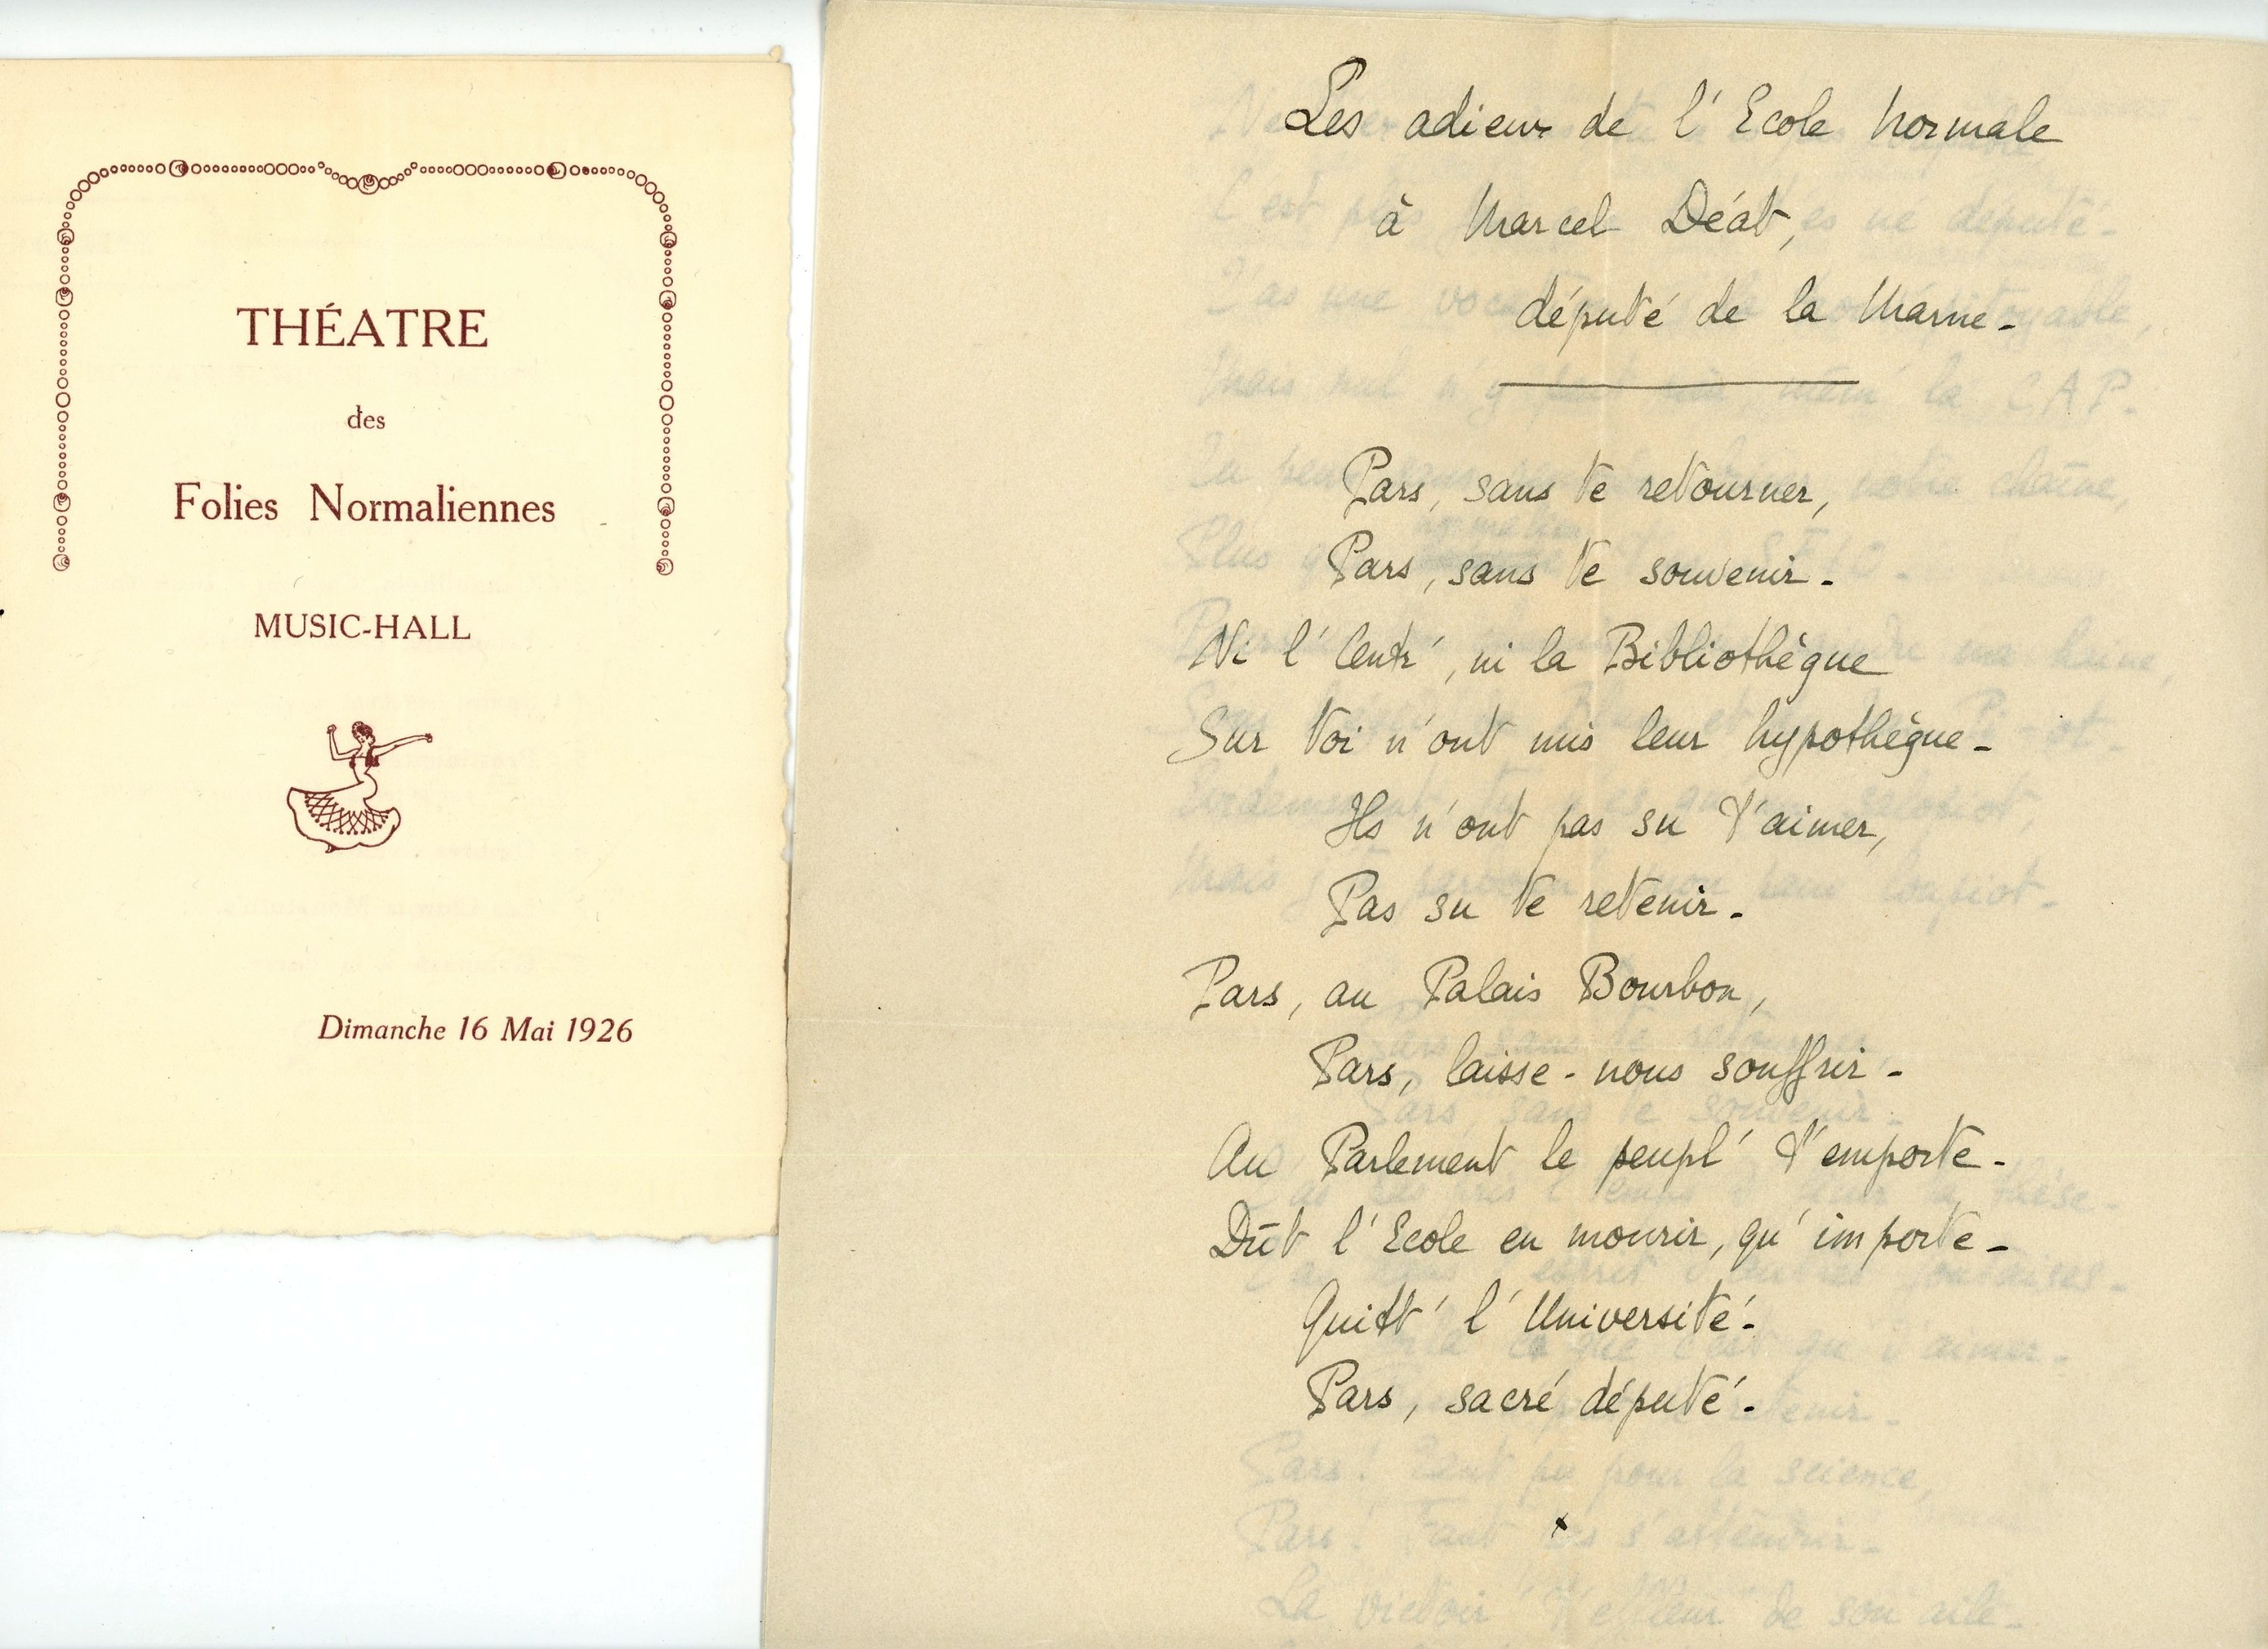 THÉATRE
des
Folies Normaliennes
MUSIC-HALL
Dimanche 16 Mai 1926
Les adieux de l'Ecole Normale
à Marcel Déat,
député de la Marne-
Pars, sans te retourner,
Pars, sans te souvenir-
Ni l'Centr', ni la Bibliothèque
Sur toi n'ont mis leur hypothèque-
Ils n'ont pas su t'aimer,
Pas su te retenir-
Pars, au Palais Bourbon,
Pars, laisse-nous souffrir-
Au Parlement le peupl' t'emporte-
Dût l'Ecole en mourir, qu'importe-
Quitt' l'Université-
Pars, sacré député-